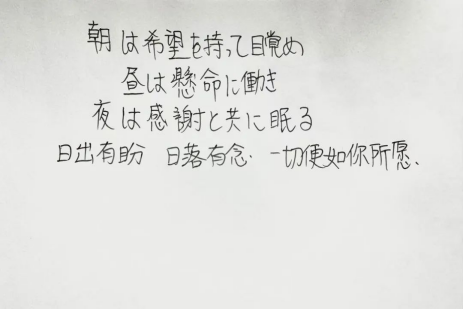 朝は希望を持って目覚め
昼は懸命に働き
夜は感謝と共に眠る
日出有盼 日落有念. 一切便如你所愿.